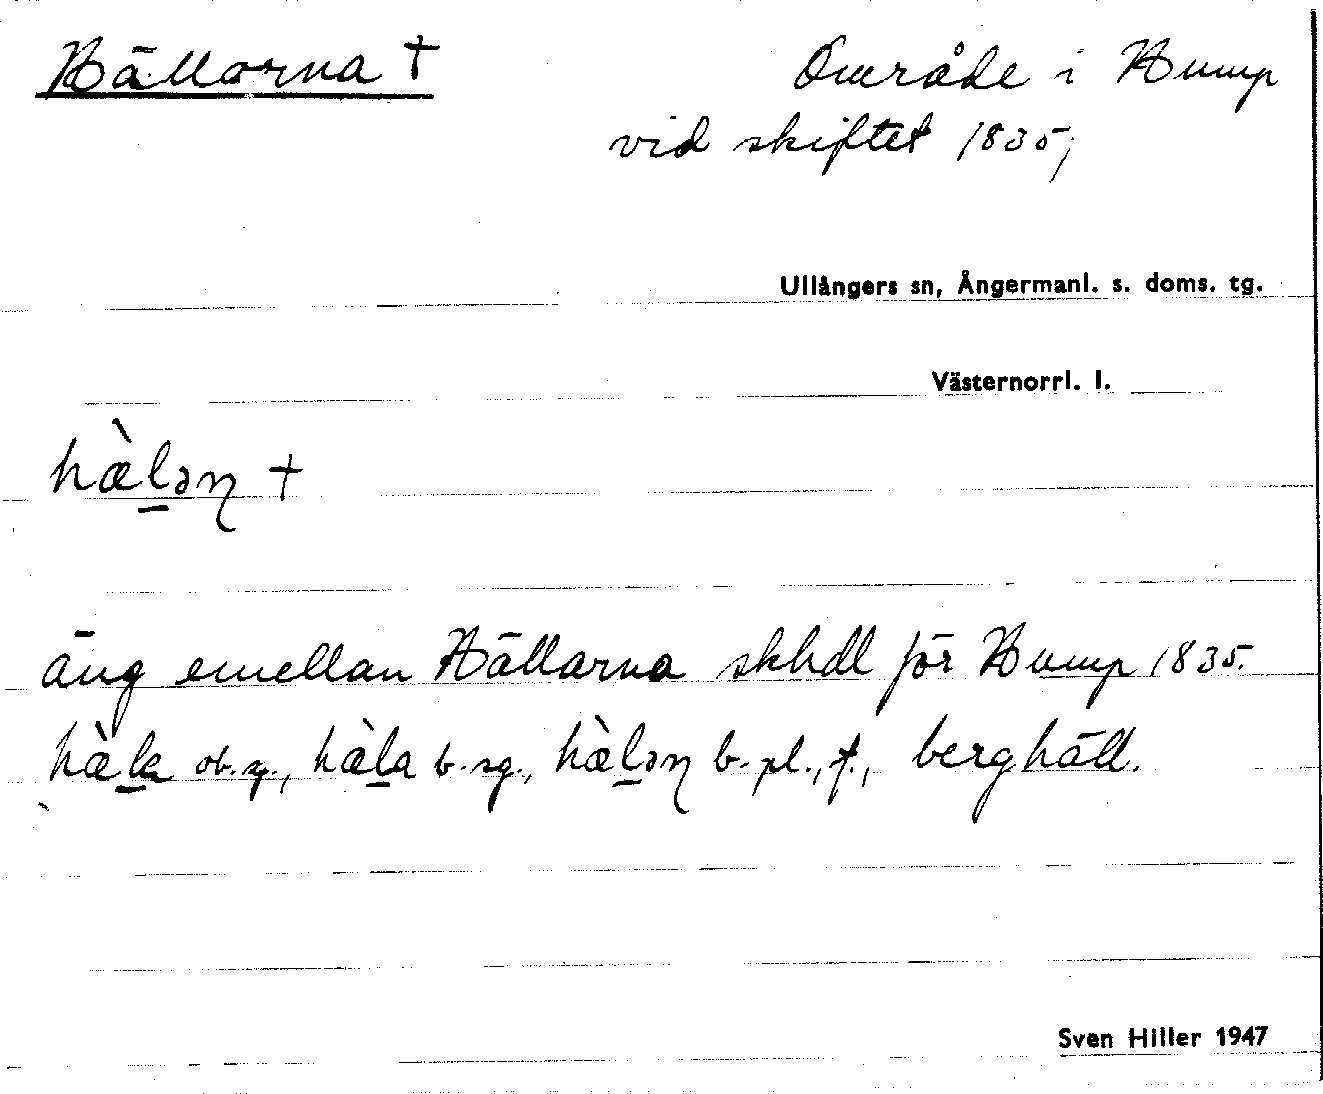 Hällorna †
Område i Hump
vid skiftet 1835,
Ullångers sn, Ångermanl. s. doms. tg.
Västernorrl. l.
hæ̀l̠əɳ †
äng emellan Hällarna skhdl för Hump 1835.
hæ̀l̠a b. sg., hæ̀l̠əɳ b. pl., f., berghäll.
Sven Hiller 1947